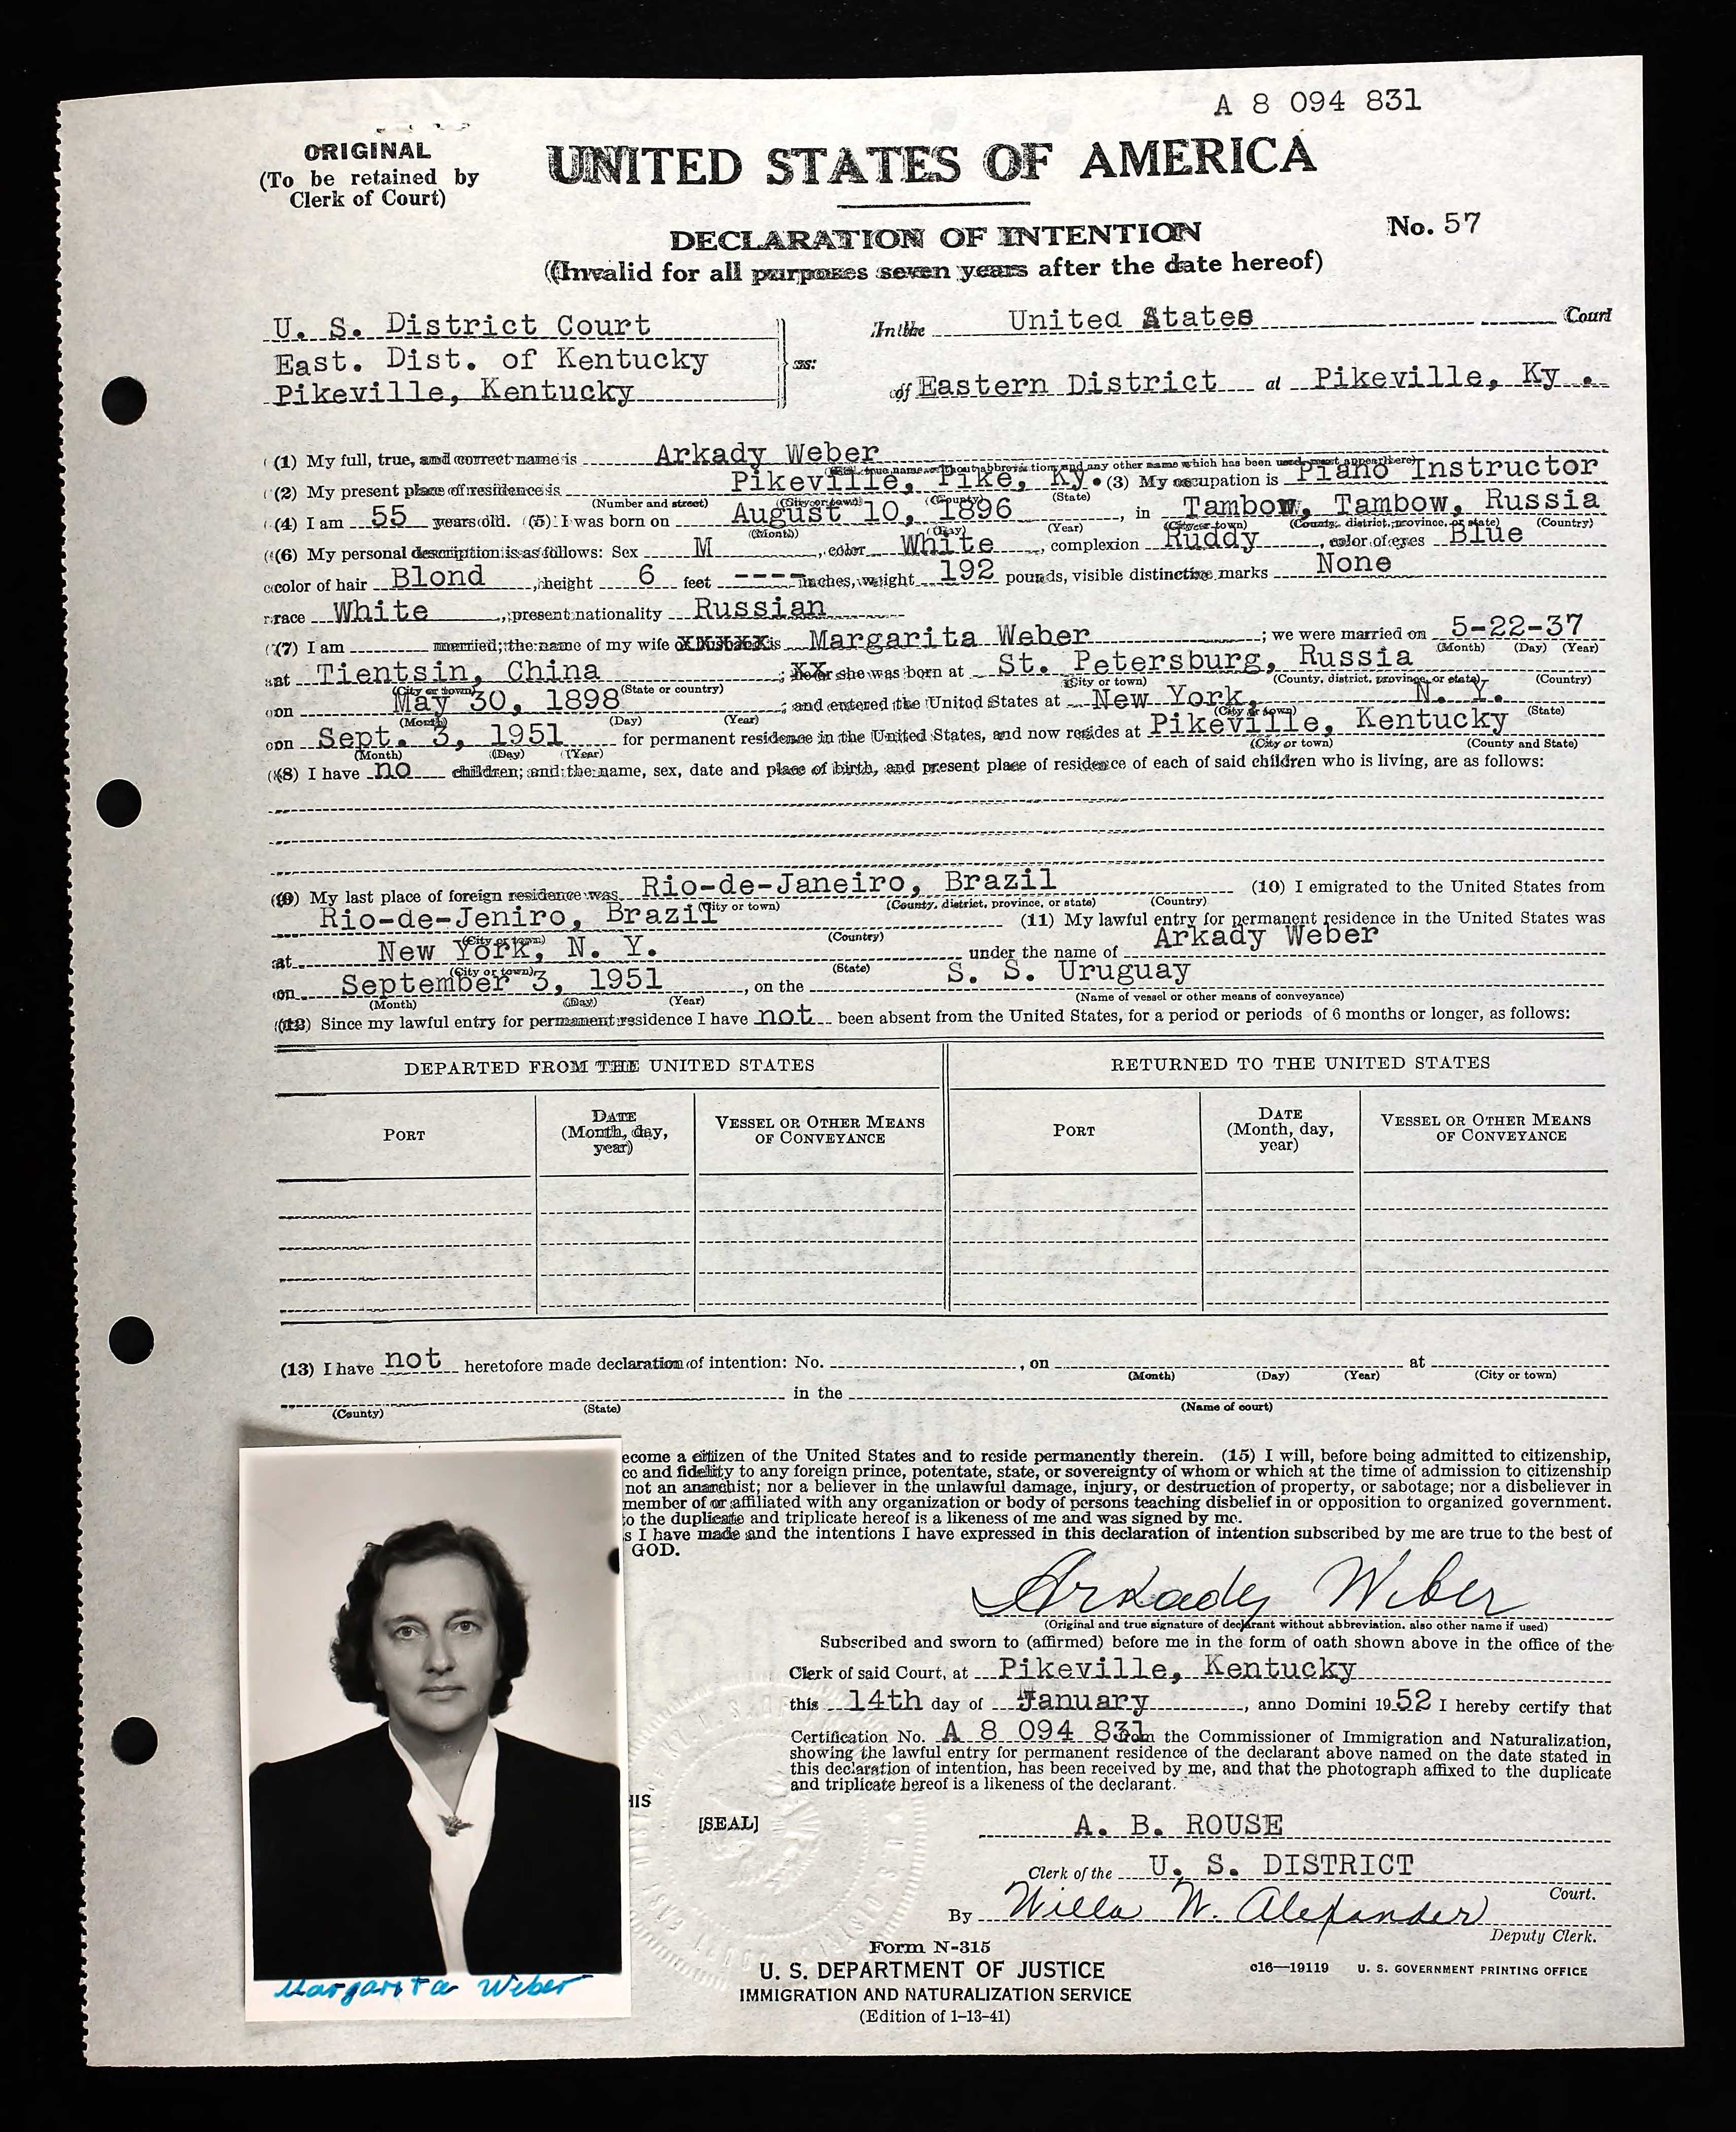 A 8 094 831
ORIGINAL
(To be retained by
Clerk of Court)
UNITED STATES OF AMERICA
DECLARATION OF INTENTION
No. 57
(Invalid for all purposes seven years after the date hereof)
U. S. District Court
East. Dist. of Kentucky
Pikeville, Kentucky
ss:
In the United States Court
of Eastern District at Pikeville, Ky.
(1) My full, true, and correct name is Arkady Weber
(Full, true name, without abbreviation, and any other name which has been used, must appear here)
(2) My present place of residence is Pikeville, Pike, Ky. (3) My occupation is Piano Instructor
(Number and street) (City or town) (County) (State)
(4) I am 55 years old. (5) I was born on August 10, 1896, in Tambow, Tambow, Russia
(Month) (Day) (Year) (City or town) (County, district, province, or state) (Country)
(6) My personal description is as follows: Sex M, color White, complexion Ruddy, color of eyes Blue
color of hair Blond, height 6 feet ---- inches, weight 192 pounds, visible distinctive marks None
race White, present nationality Russian
(7) I am married; the name of my wife or husband is Margarita Weber; we were married on 5-22-37
(Month) (Day) (Year)
at Tientsin, China; he or she was born at St. Petersburg, Russia
(City or town) (State or country) (City or town) (County, district, province, or state) (Country)
on May 30, 1898; and entered the United States at New York, N. Y.
(Month) (Day) (Year) (City or town) (State)
on Sept. 3, 1951 for permanent residence in the United States, and now resides at Pikeville, Kentucky
(Month) (Day) (Year) (City or town) (County and State)
(8) I have no children; and the name, sex, date and place of birth, and present place of residence of each of said children who is living, are as follows:
(9) My last place of foreign residence was Rio-de-Janeiro, Brazil (10) I emigrated to the United States from
(City or town) (County, district, province, or state) (Country)
Rio-de-Jeniro, Brazil (11) My lawful entry for permanent residence in the United States was
(City or town) (Country)
at New York, N. Y. under the name of Arkady Weber
(City or town) (State)
on September 3, 1951, on the S. S. Uruguay
(Month) (Day) (Year) (Name of vessel or other means of conveyance)
(12) Since my lawful entry for permanent residence I have not been absent from the United States, for a period or periods of 6 months or longer, as follows:
DEPARTED FROM THE UNITED STATES RETURNED TO THE UNITED STATES
PORT DATE (Month, day, year) VESSEL OR OTHER MEANS OF CONVEYANCE PORT DATE (Month, day, year) VESSEL OR OTHER MEANS OF CONVEYANCE
(13) I have not heretofore made declaration of intention: No. , on at
(Month) (Day) (Year) (City or town)
in the
(County) (State) (Name of court)
ecome a citizen of the United States and to reside permanently therein. (15) I will, before being admitted to citizenship,
ce and fidelity to any foreign prince, potentate, state, or sovereignty of whom or which at the time of admission to citizenship
not an anarchist; nor a believer in the unlawful damage, injury, or destruction of property, or sabotage; nor a disbeliever in
member of or affiliated with any organization or body of persons teaching disbelief in or opposition to organized government.
o the duplicate and triplicate hereof is a likeness of me and was signed by me.
s I have made and the intentions I have expressed in this declaration of intention subscribed by me are true to the best of
GOD.
Arkady Weber
(Original and true signature of declarant without abbreviation, also other name if used)
Subscribed and sworn to (affirmed) before me in the form of oath shown above in the office of the
Clerk of said Court, at Pikeville, Kentucky
this 14th day of January, anno Domini 1952 I hereby certify that
Certification No. A 8 094 831 from the Commissioner of Immigration and Naturalization,
showing the lawful entry for permanent residence of the declarant above named on the date stated in
this declaration of intention, has been received by me, and that the photograph affixed to the duplicate
and triplicate hereof is a likeness of the declarant.
HIS
[SEAL]
A. B. ROUSE
Clerk of the U. S. DISTRICT
Court.
By Willa W. Alexander
Deputy Clerk.
Margarita Weber
Form N-315
U. S. DEPARTMENT OF JUSTICE
IMMIGRATION AND NATURALIZATION SERVICE
(Edition of 1-13-41)
c16—19119 U. S. GOVERNMENT PRINTING OFFICE